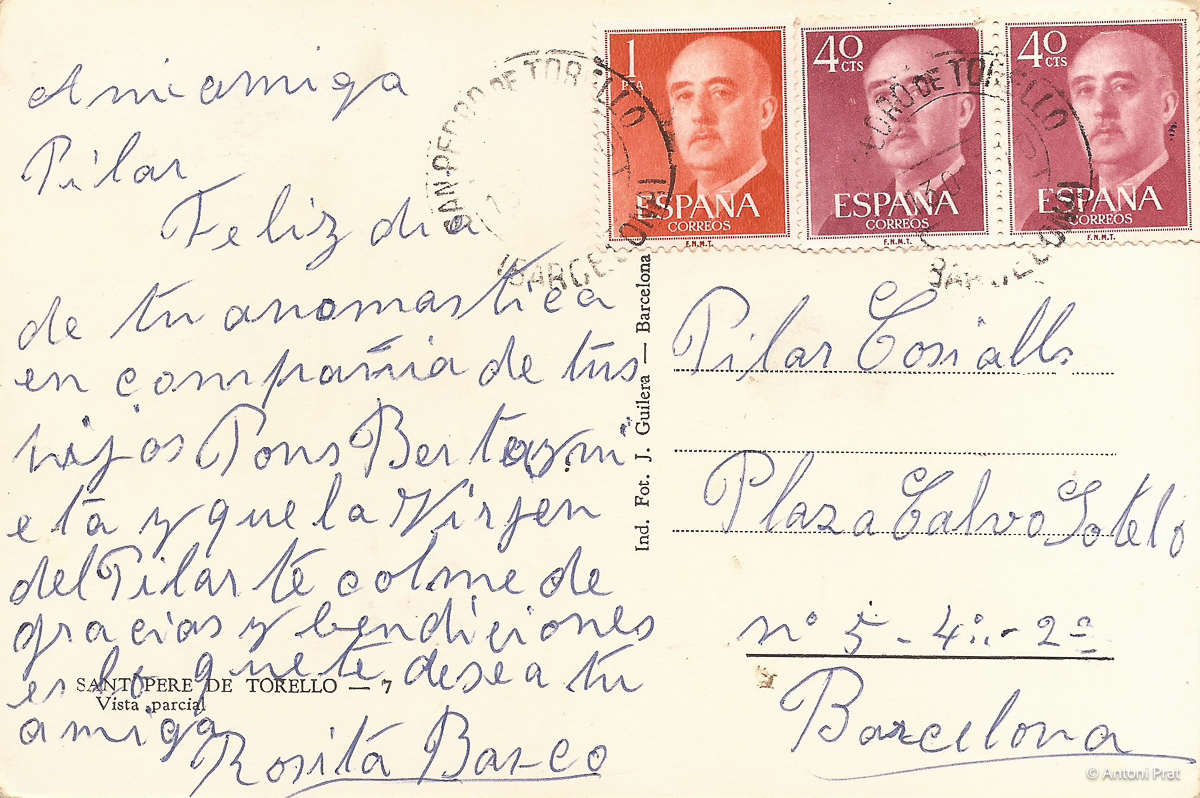 A mi amiga
Pilar
Feliz dia
de tu anomastica
en compañia de tus
hijos Pons Berta y ni
eta y que la Virjen
del Pilar te colme de
gracias y bendiciones
es lo que te desea tu
amiga
Rosita Basco
SANT PERE DE TORELLO — 7
Vista parcial
Ind. Fot. J. Guilera — Barcelona
SAN PEDRO DE TORELLO
(BARCELONA)
1
PTA
ESPAÑA
CORREOS
F.N.M.T.
40
CTS
ESPAÑA
CORREOS
F.N.M.T.
40
CTS
ESPAÑA
CORREOS
F.N.M.T.
PEDRO DE TORELLO
BARCELONA)
Pilar
Plaza Calvo Sotelo
nº 5 - 4º - 2ª
Barcelona
© Antoni Prat